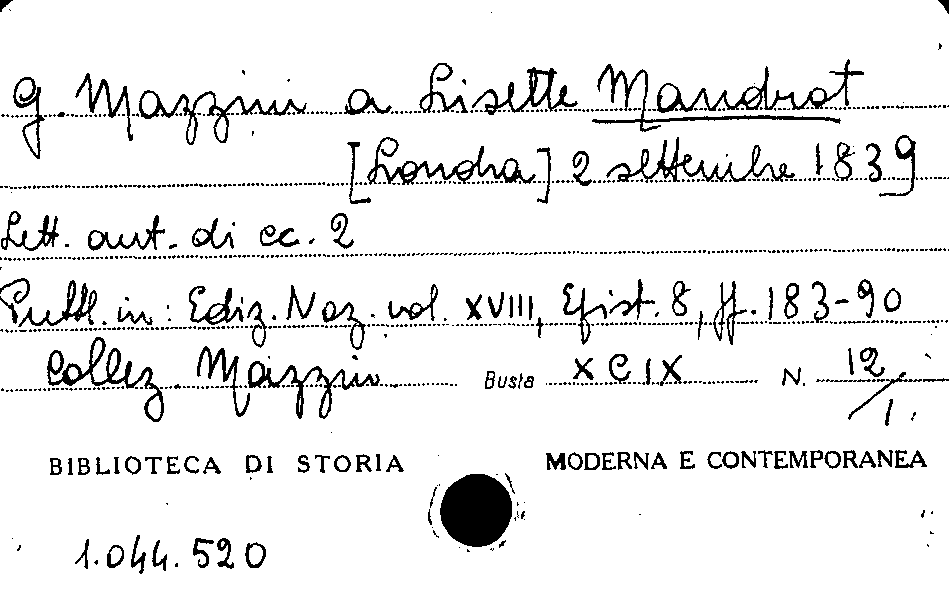 G. Mazzini a Lisette Mandrot
[Londra] 2 settembre 1839
Lett. aut. di cc. 2
Pubbl. in: Ediz. Naz. vol. XVIII, Epist. 8, pp. 183-90
Collez. Mazzini Busta XCIX N. 12/1.
BIBLIOTECA DI STORIA MODERNA E CONTEMPORANEA
1.044.520